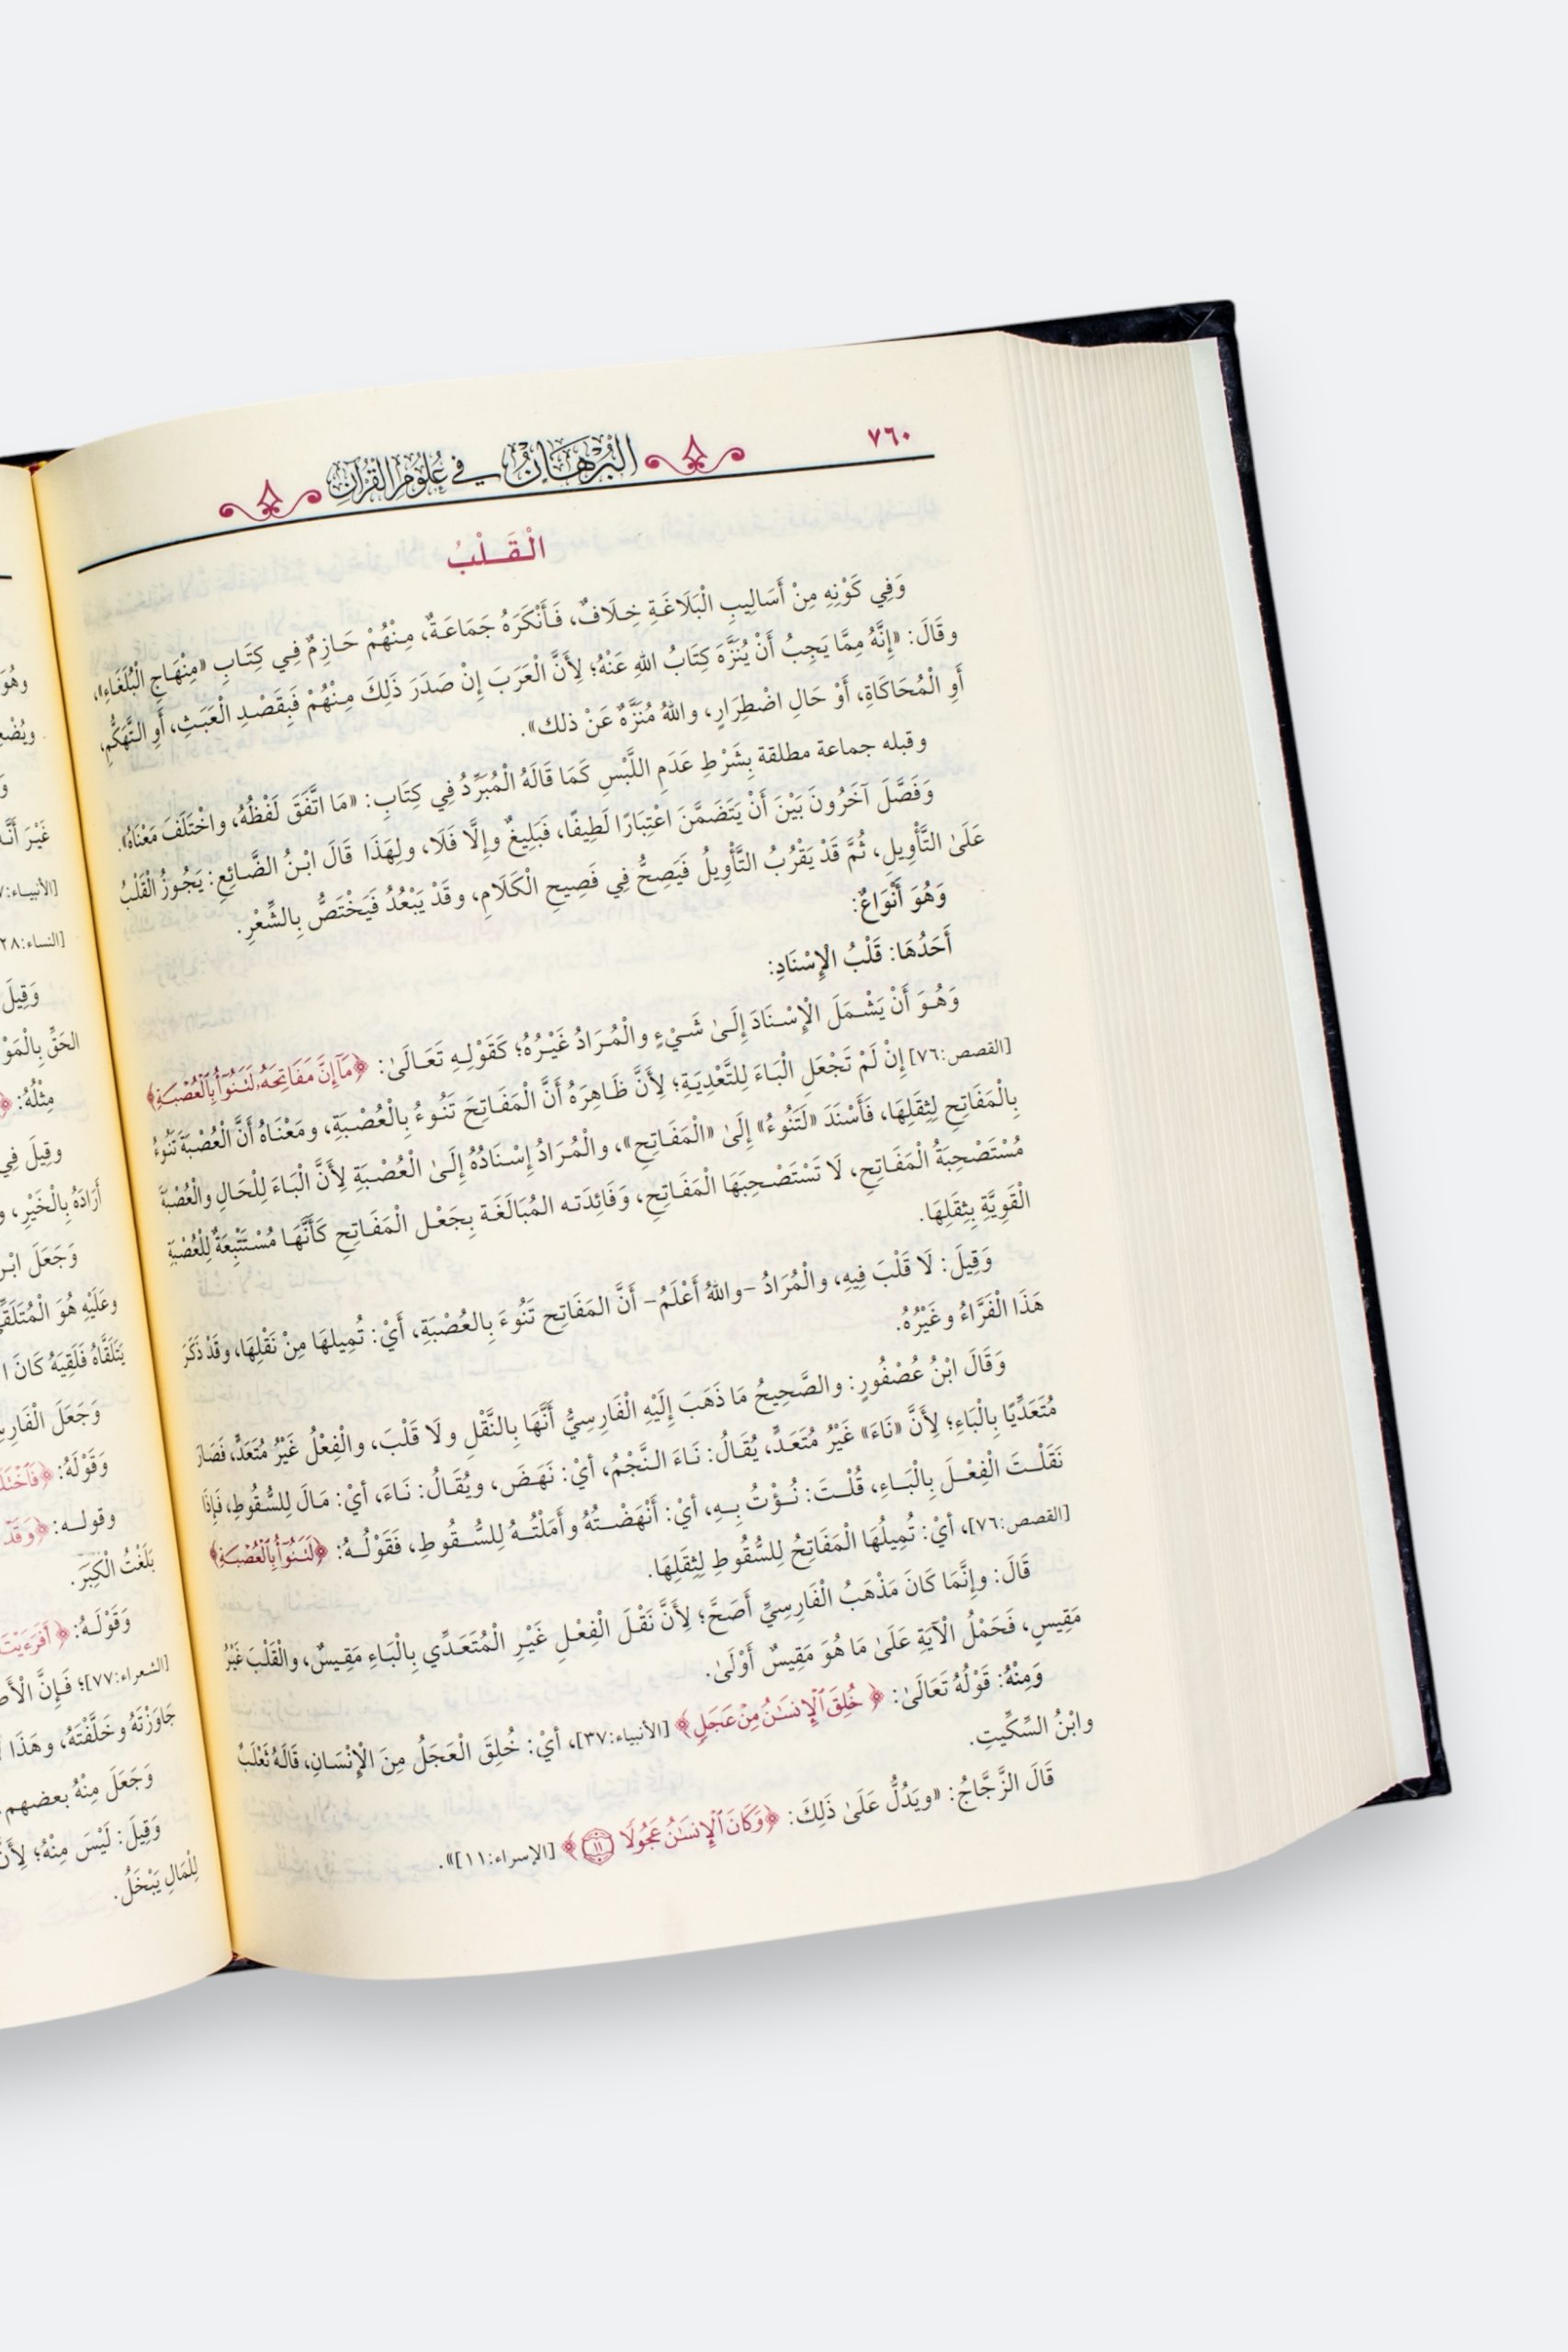 ٧٦٠
البُرْهَانُ فِي عُلُومِ الْقُرْآنِ
الْقَــلْبُ
وَفِي كَوْنِهِ مِنْ أَسَالِيبِ الْبَلَاغَةِ خِلَافٌ، فَأَنْكَرَهُ جَمَاعَةٌ، مِنْهُمْ حَازِمٌ فِي كِتَابِ «مِنْهَاجِ الْبُلَغَاءِ»،
وقَالَ: «إِنَّهُ مِمَّا يَجِبُ أَنْ يُنَزَّهَ كِتَابُ اللهِ عَنْهُ؛ لِأَنَّ الْعَرَبَ إِنْ صَدَرَ ذَلِكَ مِنْهُمْ فَبِقَصْدِ الْعَبَثِ، أَوِ التَّهَكُّمِ،
أَوِ الْمُحَاكَاةِ، أَوْ حَالِ اضْطِرَارٍ، واللهُ مُنَزَّهٌ عَنْ ذلك».
وقبله جماعة مطلقة بِشَرْطِ عَدَمِ اللَّبْسِ كَمَا قَالَهُ الْمُبَرِّدُ فِي كِتَابِ: «مَا اتَّفَقَ لَفْظُهُ، واخْتَلَفَ مَعْنَاهُ».
وَفَصَّلَ آخَرُونَ بَيْنَ أَنْ يَتَضَمَّنَ اعْتِبَارًا لَطِيفًا، فَبَلِيغٌ وإِلَّا فَلَا، ولِهَذَا قَالَ ابْنُ الضَّائِعِ: يَجُوزُ الْقَلْبُ
عَلَىٰ التَّأْوِيلِ، ثُمَّ قَدْ يَقْرُبُ التَّأْوِيلُ فَيَصِحُّ فِي فَصِيحِ الْكَلَامِ، وقَدْ يَبْعُدُ فَيَخْتَصُّ بِالشِّعْرِ.
وَهُوَ أَنْوَاعٌ:
أَحَدُهَا: قَلْبُ الْإِسْنَادِ:
وَهُوَ أَنْ يَشْمَلَ الْإِسْنَادَ إِلَىٰ شَيْءٍ والْمُرَادُ غَيْرُهُ؛ كَقَوْلِهِ تَعَالَىٰ: ﴿مَآ إِنَّ مَفَاتِحَهُۥ لَتَنُوٓأُ بِٱلْعُصْبَةِ﴾
[القصص:٧٦] إِنْ لَمْ تَجْعَلِ الْبَاءَ لِلتَّعْدِيَةِ؛ لِأَنَّ ظَاهِرَهُ أَنَّ الْمَفَاتِحَ تَنُوءُ بِالْعُصْبَةِ، ومَعْنَاهُ أَنَّ الْعُصْبَةَ تَنُوءُ
بِالْمَفَاتِحِ لِثِقَلِهَا، فَأَسْنَدَ «لَتَنُوءُ» إِلَىٰ «الْمَفَاتِحِ»، والْمُرَادُ إِسْنَادُهُ إِلَىٰ الْعُصْبَةِ لِأَنَّ الْبَاءَ لِلْحَالِ والْعُصْبَةُ
مُسْتَصْحِبَةُ الْمَفَاتِحِ، لَا تَسْتَصْحِبَهَا الْمَفَاتِحِ، وَفَائِدَته المُبَالَغَة بِجَعْل الْمَفَاتِحِ كَأَنَّهَا مُسْتَتْبِعَةٌ لِلْعُصْبَةِ
الْقَوِيَّةِ بِثِقَلِهَا.
وَقِيلَ: لَا قَلْبَ فِيهِ، والْمُرَادُ -واللهُ أَعْلَمُ- أَنَّ المَفَاتِحِ تَنُوءَ بِالعُصْبَةِ، أَيْ: تُمِيلهَا مِنْ ثقْلِهَا، وقَدْ ذَكَرَ
هَذَا الْفَرَّاءُ وغَيْرُهُ.
وَقَالَ ابْنُ عُصْفُورٍ: والصَّحِيحُ مَا ذَهَبَ إِلَيْهِ الْفَارِسِيُّ أَنَّهَا بِالنَّقْلِ ولَا قَلْبَ، والْفِعْلُ غَيْرُ مُتَعَدٍّ، فَصَارَ
مُتَعَدِّيًا بِالْبَاءِ؛ لِأَنَّ «نَاءَ» غَيْرُ مُتَعَدٍّ، يُقَالُ: نَاءَ النَّجْمُ، أيْ: نَهَضَ، ويُقَالُ: نَاءَ، أيْ: مَالَ لِلسُّقُوطِ، فَإِذَا
نَقَلْتَ الْفِعْلَ بِالْبَاءِ، قُلْتَ: نُؤْتُ بِهِ، أيْ: أَنْهَضْتُهُ وأَمَلْتُهُ لِلسُّقُوطِ، فَقَوْلُهُ: ﴿لَتَنُوٓأُ بِٱلْعُصْبَةِ﴾
[القصص:٧٦]، أيْ: تُمِيلُهَا الْمَفَاتِحُ لِلسُّقُوطِ لِثِقَلِهَا.
قَالَ: وإِنَّمَا كَانَ مَذْهَبُ الْفَارِسِيِّ أَصَحَّ؛ لِأَنَّ نَقْلَ الْفِعْلِ غَيْرِ الْمُتَعَدِّي بِالْبَاءِ مَقِيسٌ، والْقَلْبَ غَيْرُ
مَقِيسٍ، فَحَمْلُ الْآيَةِ عَلَىٰ مَا هُوَ مَقِيسٌ أَوْلَىٰ.
وَمِنْهُ: قَوْلُهُ تَعَالَىٰ: ﴿خُلِقَ ٱلْإِنسَـٰنُ مِنْ عَجَلٍ﴾ [الأنبياء:٣٧]، أيْ: خُلِقَ الْعَجَلُ مِنَ الْإِنْسَانِ، قَالَهُ ثَعْلَبٌ
وابْنُ السِّكِّيتِ.
قَالَ الزَّجَّاجُ: «ويَدُلُّ عَلَىٰ ذَلِكَ: ﴿وَكَانَ ٱلْإِنسَـٰنُ عَجُولًا ١١﴾ [الإسراء:١١]».
غَيْرَ
[الأنبياء:
[النساء:٢٨
وَقِيلَ
الحَقِّ بِالْمَوْ
مِثْلُهُ:
وقِيلَ فِي
أَرَادَهُ بِالْخَيْرِ،
وَجَعَلَ
وعَلَيْهِ هُوَ الْمُتَلَقِّ
يَتَلَقَّاهُ فَلَقِيَهُ كَانَ
وَجَعَلَ الْفَارِسِ
وَقَوْلَهُ:
وقولــه:
بَلَغْتُ الْكِبَرَ.
وَقَوْلَهُ: ﴿أَفَرَءَيْتَ
[الشعراء:٧٧]؛ فَإِنَّ الْأَصْ
جَاوَزْتَهُ وخَلَّفْتَهُ، وهَذَا
وَجَعَلَ مِنْهُ بعضهم
وَقِيلَ: لَيْسَ مِنْهُ؛ لِأَنَّ
لِلْمَالِ يَبْخَلُ.